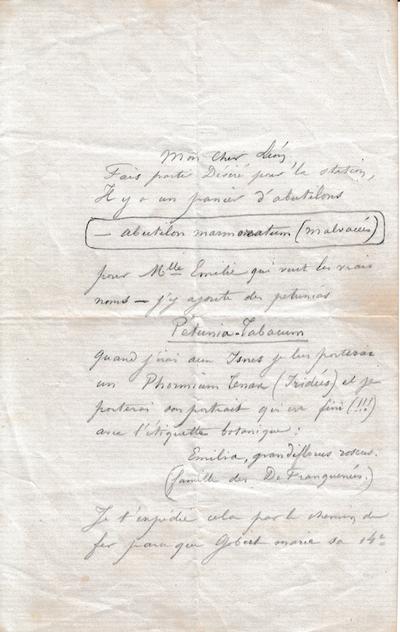 Mon cher Léon,
Fais partir Désiré pour la station,
Il y a un panier d'abutilons
– abutilon marmoratum (malvacées)
pour Mlle Emélie qui veut les vrais
noms – j'y ajoute des petunias
Pétunia-Tabacum
quand j'irai aux Isnes je lui porterai
un Phormium Tenax (Iridées) et je
porterai son portrait qui est fini (!!!)
avec l'étiquette botanique :
Emilia, grandiflorus roseus.
(famille des De Franquenées.)
Je t'expédie cela par le chemin de
fer parce que Gobert marie sa